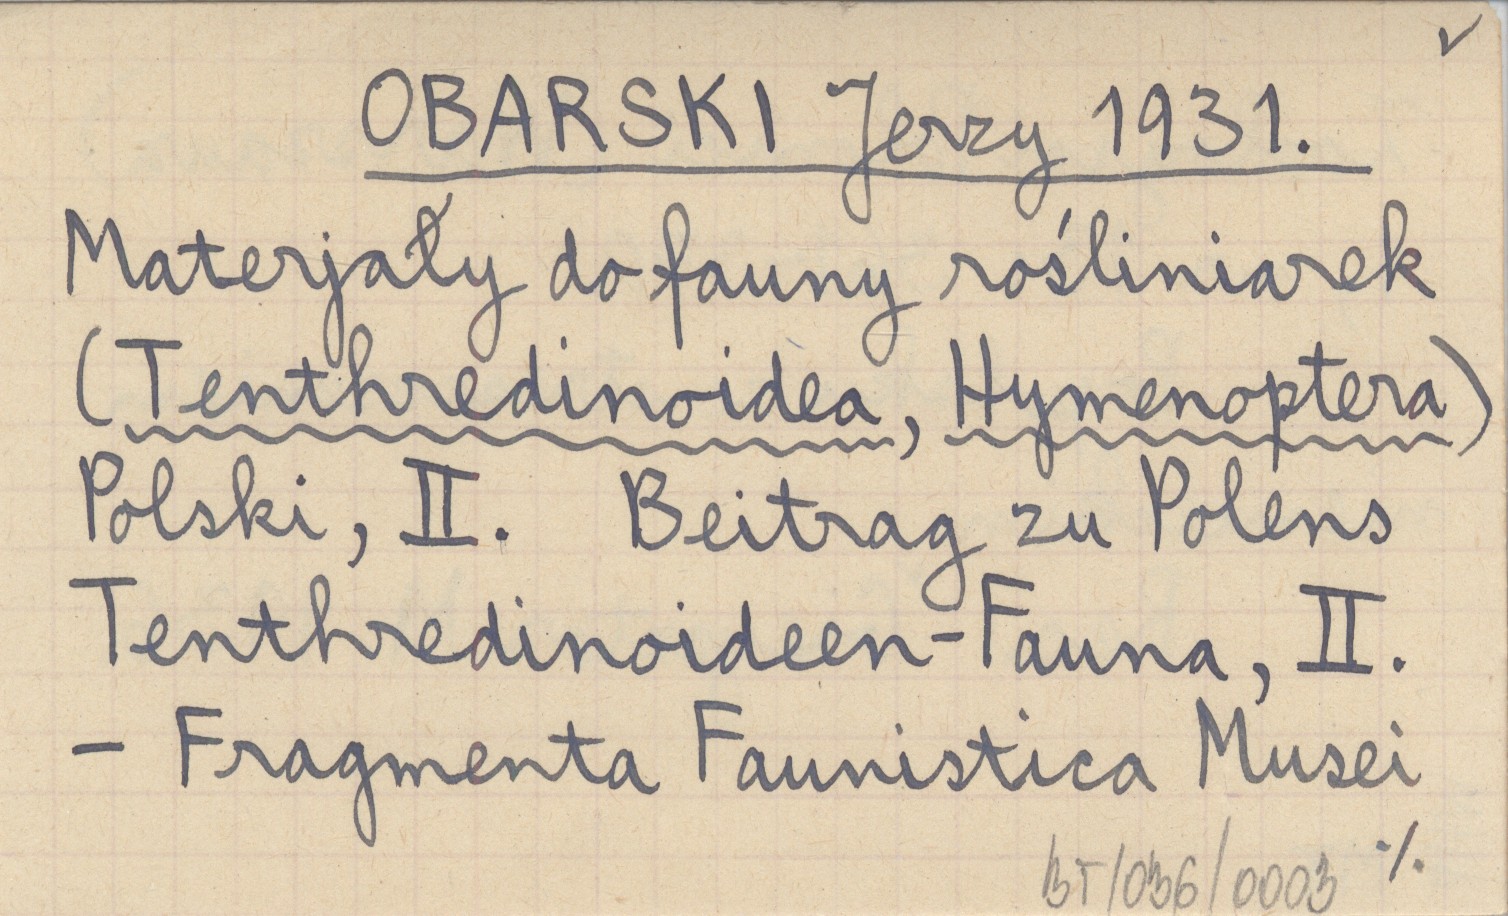 ✓
OBARSKI Jerzy 1931.
Materjały do fauny rośliniarek
(Tenthredinoidea, Hymenoptera)
Polski, II. Beitrag zu Polens
Tenthredinoideen-Fauna, II.
– Fragmenta Faunistica Musei
BT/036/0003 ·/.